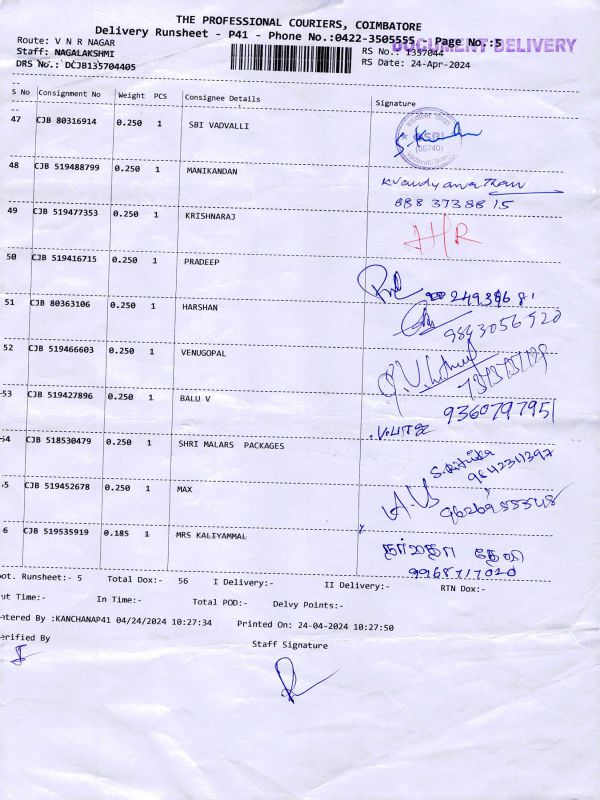 THE PROFESSIONAL COURIERS, COIMBATORE
Delivery Runsheet - P41 - Phone No.:0422-3505555 - Page No.:5
DOCUMENT DELIVERY
Route: V N R NAGAR
RS No.: 1357044
Staff: NAGALAKSHMI
DRS No.: DCJB135704405
RS Date: 24-Apr-2024
S No Consignment No Weight PCS Consignee Details Signature
47 CJB 80316914 0.250 1 SBI VADVALLI
SBI
48 CJB 519488799 0.250 1 MANIKANDAN
888 3738815
49 CJB 519477353 0.250 1 KRISHNARAJ
50 CJB 519416715 0.250 1 PRADEEP
51 CJB 80363106 0.250 1 HARSHAN
9843056920
52 CJB 519466603 0.250 1 VENUGOPAL
53 CJB 519427896 0.250 1 BALU V
9360797951
54 CJB 518530479 0.250 1 SHRI MALARS PACKAGES
5 CJB 519452678 0.250 1 MAX
6 CJB 519535919 0.185 1 MRS KALIYAMMAL
9968717020
ot. Runsheet:- 5 Total Dox:- 56 I Delivery:- II Delivery:- RTN Dox:-
ut Time:- In Time:- Total POD:- Delvy Points:-
ntered By :KANCHANAP41 04/24/2024 10:27:34 Printed On: 24-04-2024 10:27:50
erified By
Staff Signature